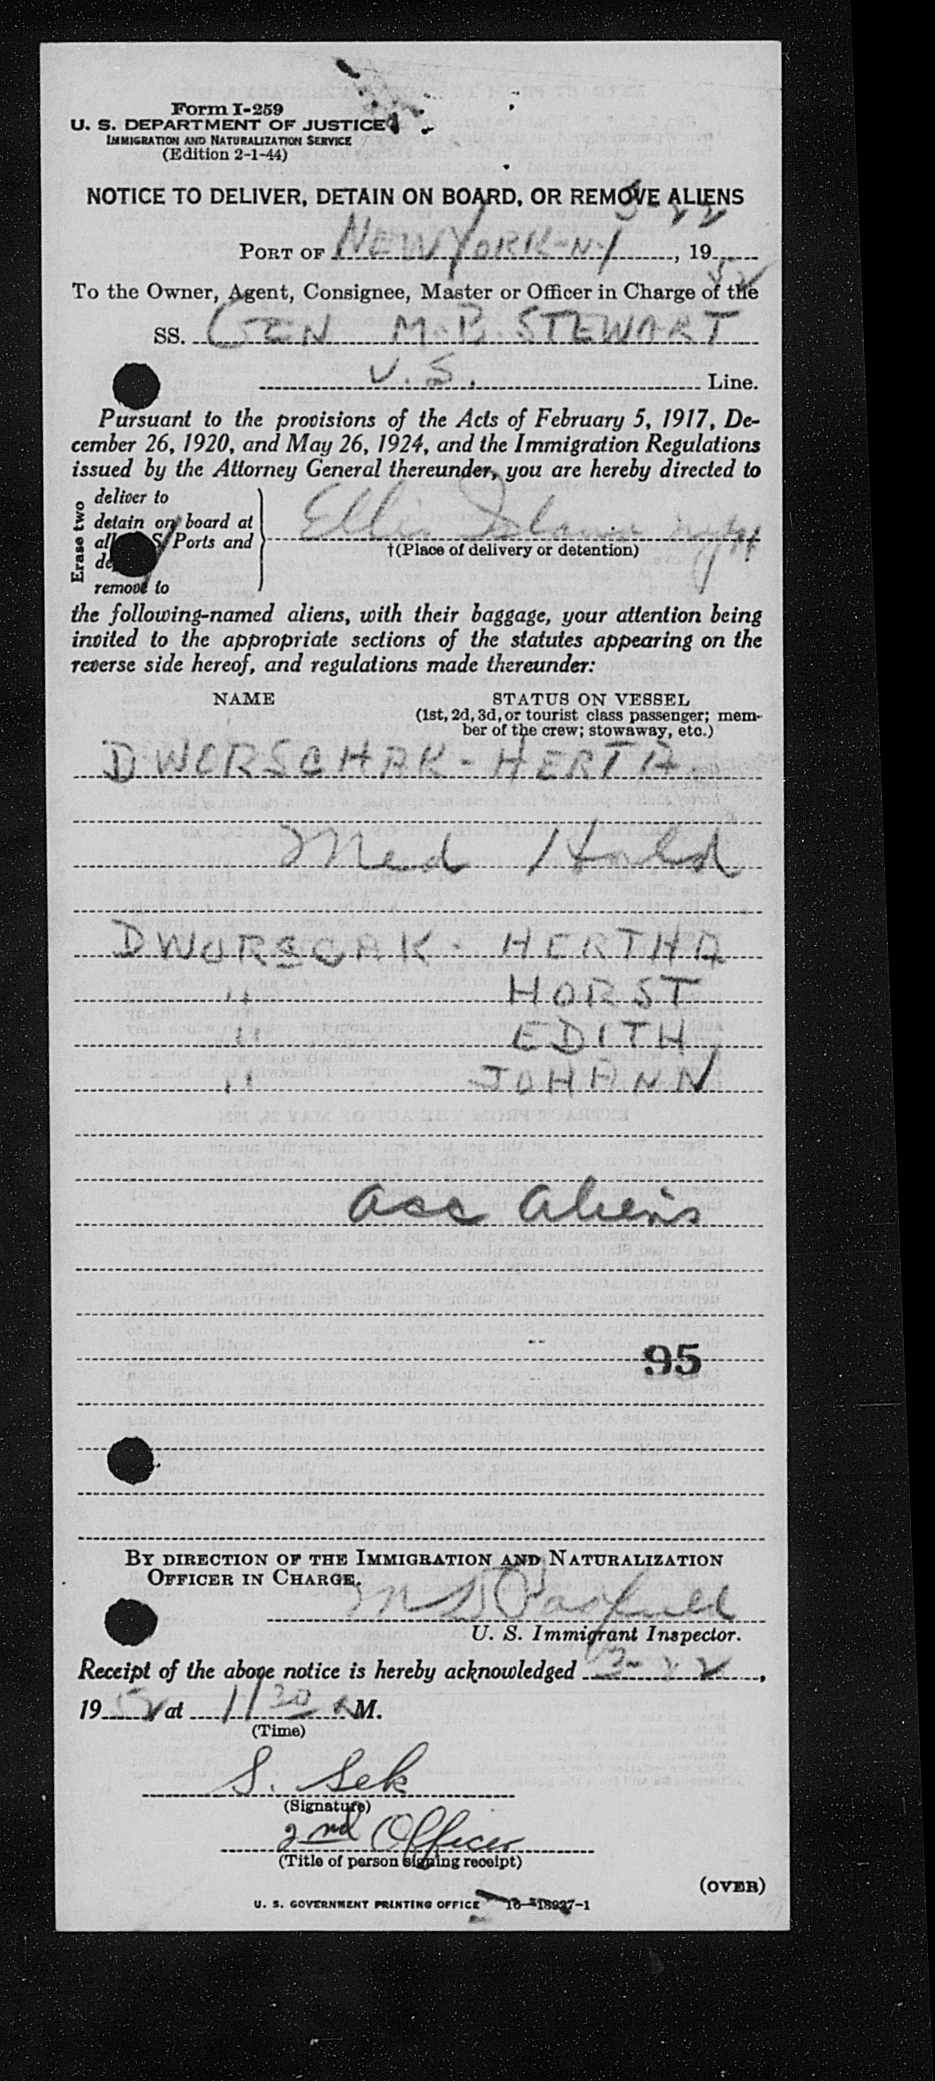 Form I-259
U. S. DEPARTMENT OF JUSTICE
IMMIGRATION AND NATURALIZATION SERVICE
(Edition 2-1-44)
NOTICE TO DELIVER, DETAIN ON BOARD, OR REMOVE ALIENS
3-22
PORT OF NEW YORK-N-Y, 19 52
To the Owner, Agent, Consignee, Master or Officer in Charge of the
SS. GEN M.B. STEWART
U.S. Line.
Pursuant to the provisions of the Acts of February 5, 1917, De-
cember 26, 1920, and May 26, 1924, and the Immigration Regulations
issued by the Attorney General thereunder, you are hereby directed to
Erase two
deliver to
detain on board at
all S. Ports and
remove to
Ellis Island
†(Place of delivery or detention)
the following-named aliens, with their baggage, your attention being
invited to the appropriate sections of the statutes appearing on the
reverse side hereof, and regulations made thereunder:
NAME STATUS ON VESSEL
(1st, 2d, 3d, or tourist class passenger; mem-
ber of the crew; stowaway, etc.)
DWORSCHAK - HERTA
Med Hold
DWORSCAK - HERTHA
" HORST
" EDITH
" JOHANN
acc aliens
95
BY DIRECTION OF THE IMMIGRATION AND NATURALIZATION
OFFICER IN CHARGE.
U. S. Immigrant Inspector.
Receipt of the above notice is hereby acknowledged 3-22,
19 52 at 11 30 A M.
(Time)
S. Sek
(Signature)
2nd Officer
(Title of person signing receipt)
(OVER)
U. S. GOVERNMENT PRINTING OFFICE 16-18937-1